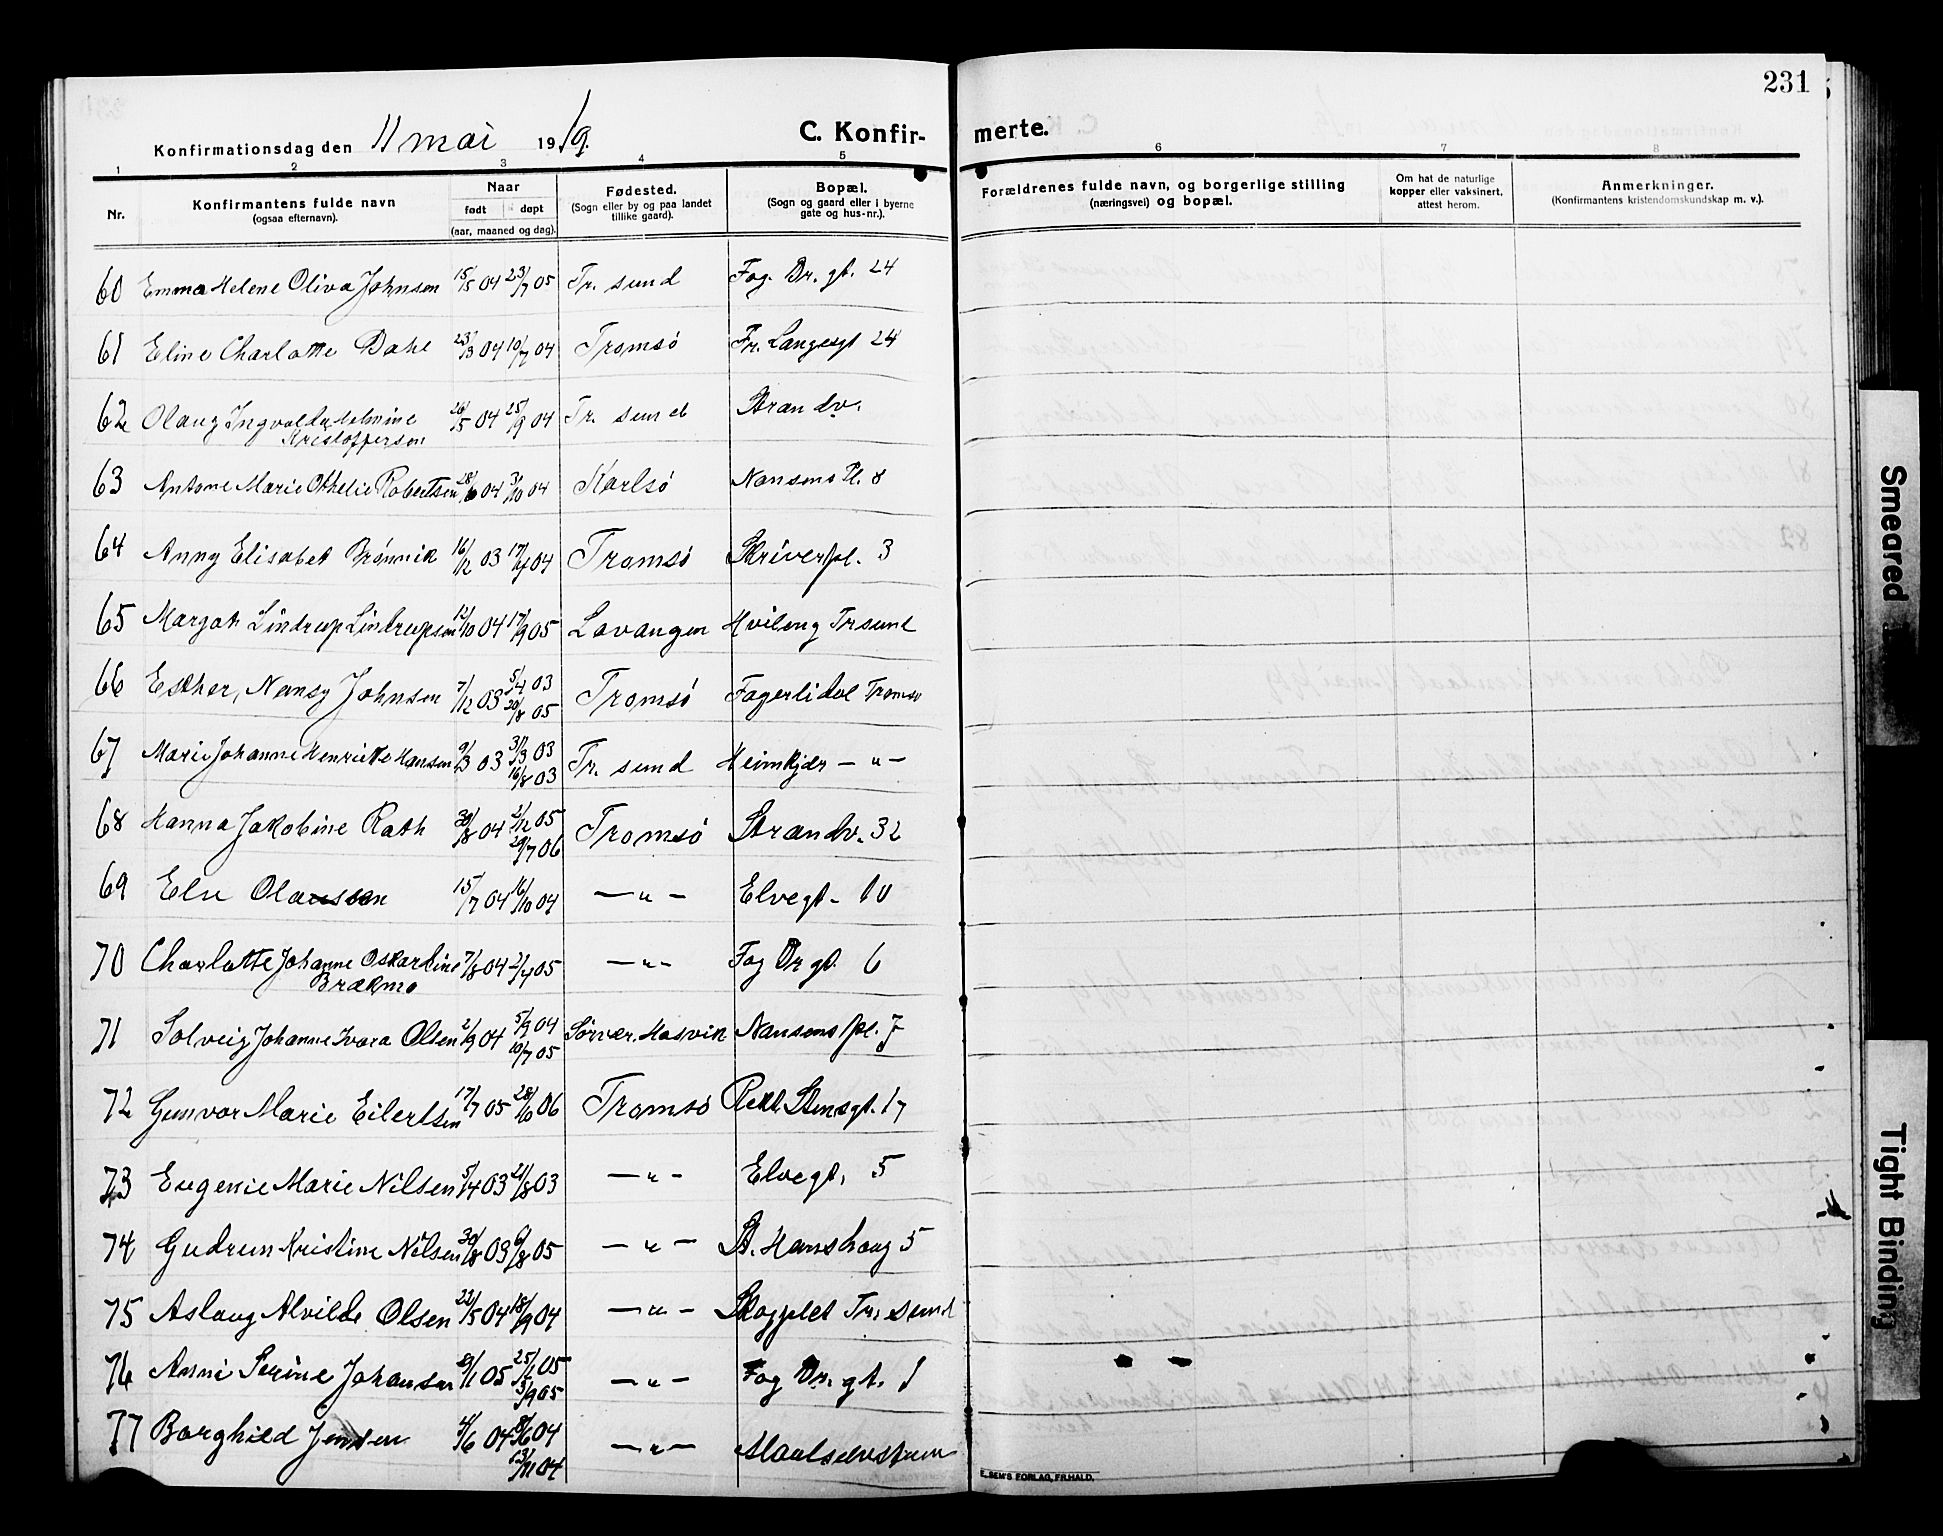 231
Konfirmationsdag den 11 mai 1919.
C. Konfirmerte.
1 2 3 4 5 6 7 8
Nr.
Konfirmantens fulde navn
(ogsaa efternavn).
Naar
født døpt
(aar, maaned og dag).
Fødested.
(Sogn eller by og paa landet
tillike gaard).
Bopæl.
(Sogn og gaard eller i byerne
gate og hus-nr.).
Forældrenes fulde navn, og borgerlige stilling
(næringsvei) og bopæl.
Om hat de naturlige
kopper eller vaksinert,
attest herom.
Anmerkninger.
(Konfirmantens kristendomskundskap m. v.).
60 Emma Helene Oliva Johnsen 15/5 04 23/7 05 Tr. sund Fog. Dr. gt. 24
61 Eline Charlotte Dahl 23/3 04 10/7 04 Tromsø Fr. Langesgt 24
62 Olaug Ingvalda Helmine 26/5 04 25/9 04 Tr. sund Strandv.
Kristoffersen
63 Antone Marie Othelie Robertsen 28/6 04 3/10 04 Karlsø Nansens Pl. 8
64 Anny Elisabet Brønnik 16/12 03 17/4 04 Tromsø Skriverpl. 3
65 Margot Lindrup Lindrupsen 12/10 04 17/9 05 Lavangen Hvileng Tr sund
66 Esther, Nansy Johnsen 7/12 03 5/4 03 Tromsø Fagerlidal Tromsø
20/8 05
67 Marie Johanne Henriette Hansen 9/3 03 31/3 03 Tr. sund Heimkjær — " —
16/8 03
68 Hanna Jakobine Rath 30/8 04 2/12 05 Tromsø Strandv. 32
29/7 06
69 Elu Olaussen 15/7 04 16/10 04 — " — Elvegt. 10
70 Charlotte Johanne Oskarline 7/8 04 2/4 05 — " — Fog Dr gt. 6
Brækmo
71 Solveig Johanne Ivara Olsen 2/9 04 5/9 04 Sørvær, Hasvik Nansens pl. 7
10/7 05
72 Gunvor Marie Eilertsen 17/7 05 28/10 06 Tromsø Rekt. Stensgt. 17
73 Eugenie Marie Nilsen 5/4 03 21/8 03 — " — Elvegt, 5
74 Gudrun Kristine Nilsen 30/8 03 6/8 05 — " — St. Hanshaug 5
75 Aslaug Alvilde Olsen 22/5 04 18/9 04 — " — Skogplet Tr. sund
76 Anni Serine Johansen /1 05 25/1 05 — " — Fog Dr. gt. 1
3/9 05
77 Borghild Jensen 4/6 04 8/6 04 — " —
13/11 04
E. SEM'S FORLAG, FR.HALD.
Smeared
Tight Binding